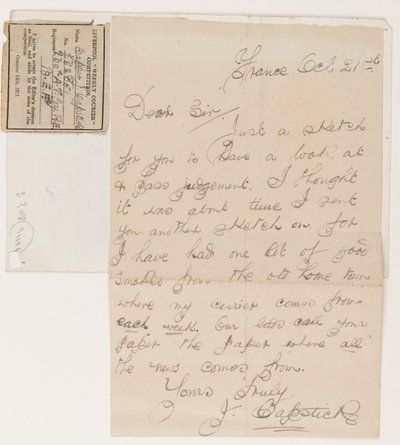 LIVERPOOL "WEEKLY COURIER"
COMPETITION.
Name Sapper J. Capstick
No.
Regiment
I agree to accept the Editor's decision
as final, and abide by the rules of the
competition.
October 13th, 1917.
France Oct 21st
Dear Sir.
Just a sketch
for you to have a look at
& pass judgement. I thought
it was about time I sent
you another sketch on for
I have had one lot of good
smokes from the old home town
where my currier comes from
each week. Our lads call your
paper the paper where all
the news comes from.
Yours Truly
J. Capstick